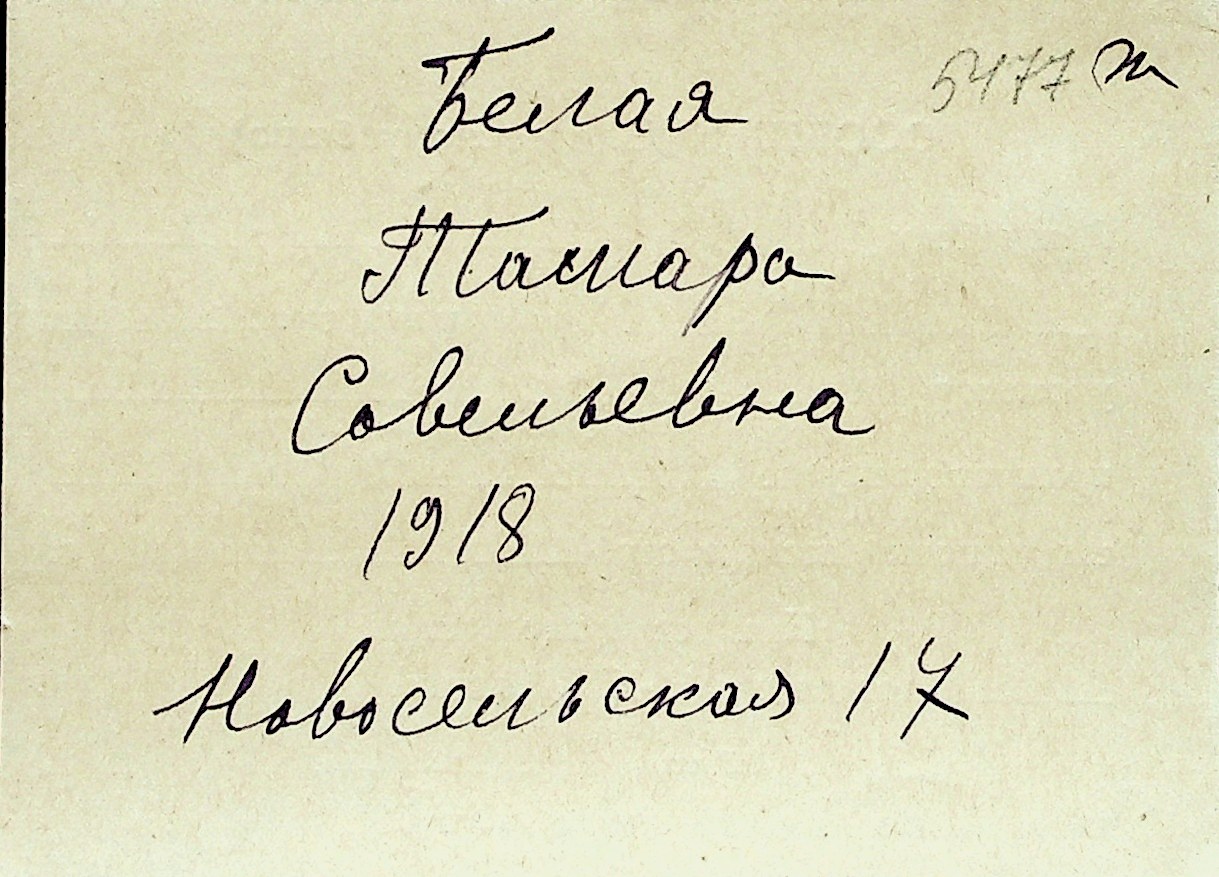 5477 ж
Белая
Тамара
Савельевна
1918
Новосельская 17